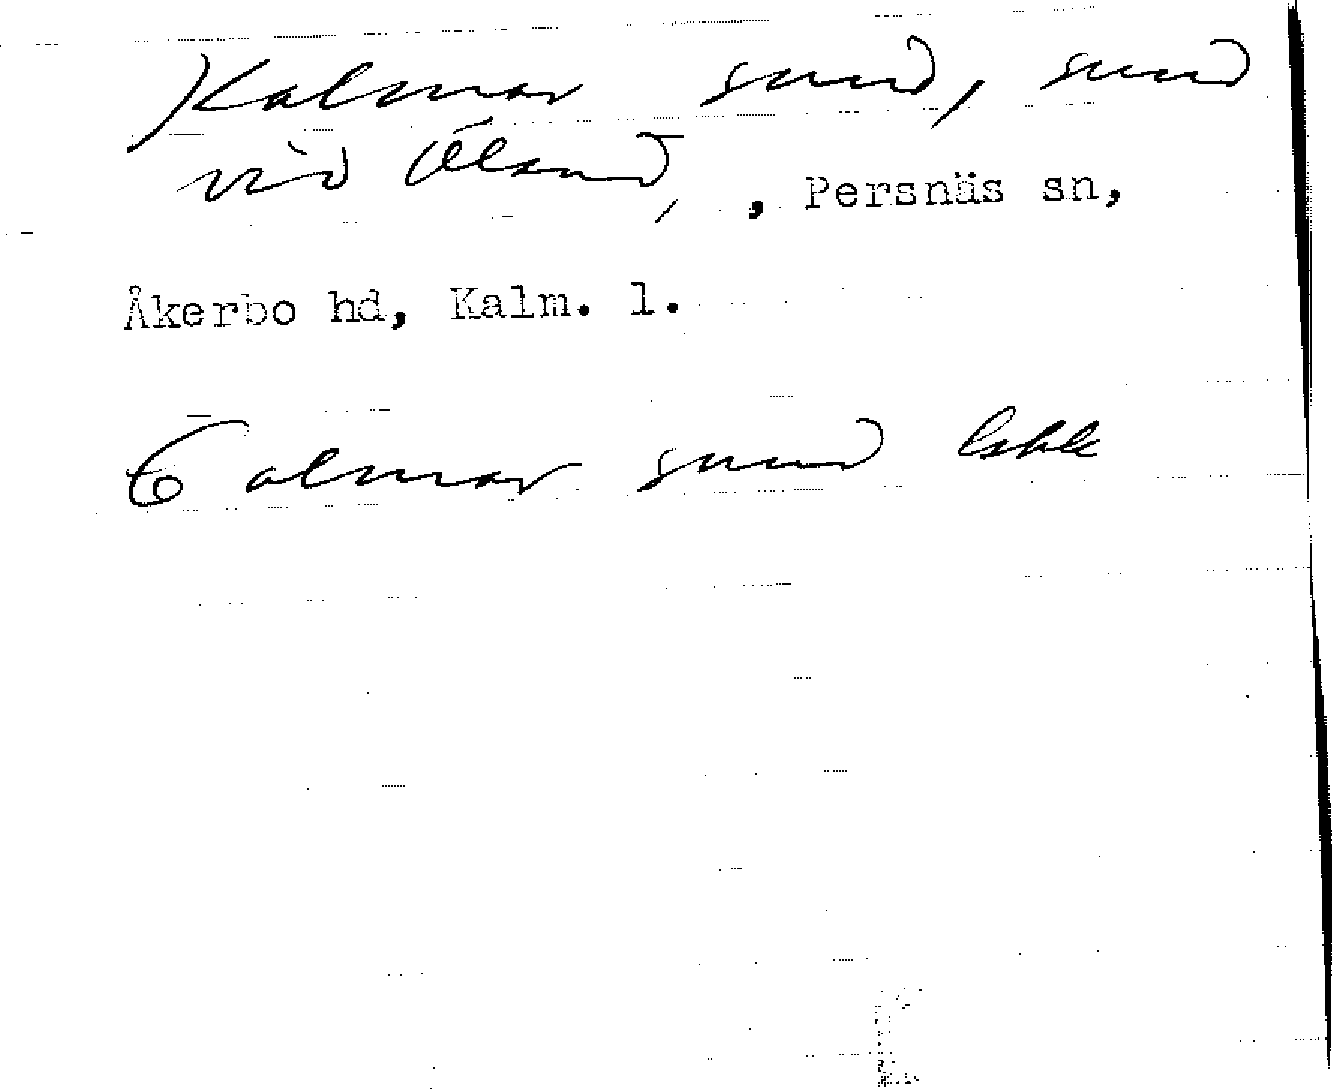 Kalmar sund, sund
vid Öland, , Persnäs sn,
Åkerbo hd, Kalm. l.
Calmar sund